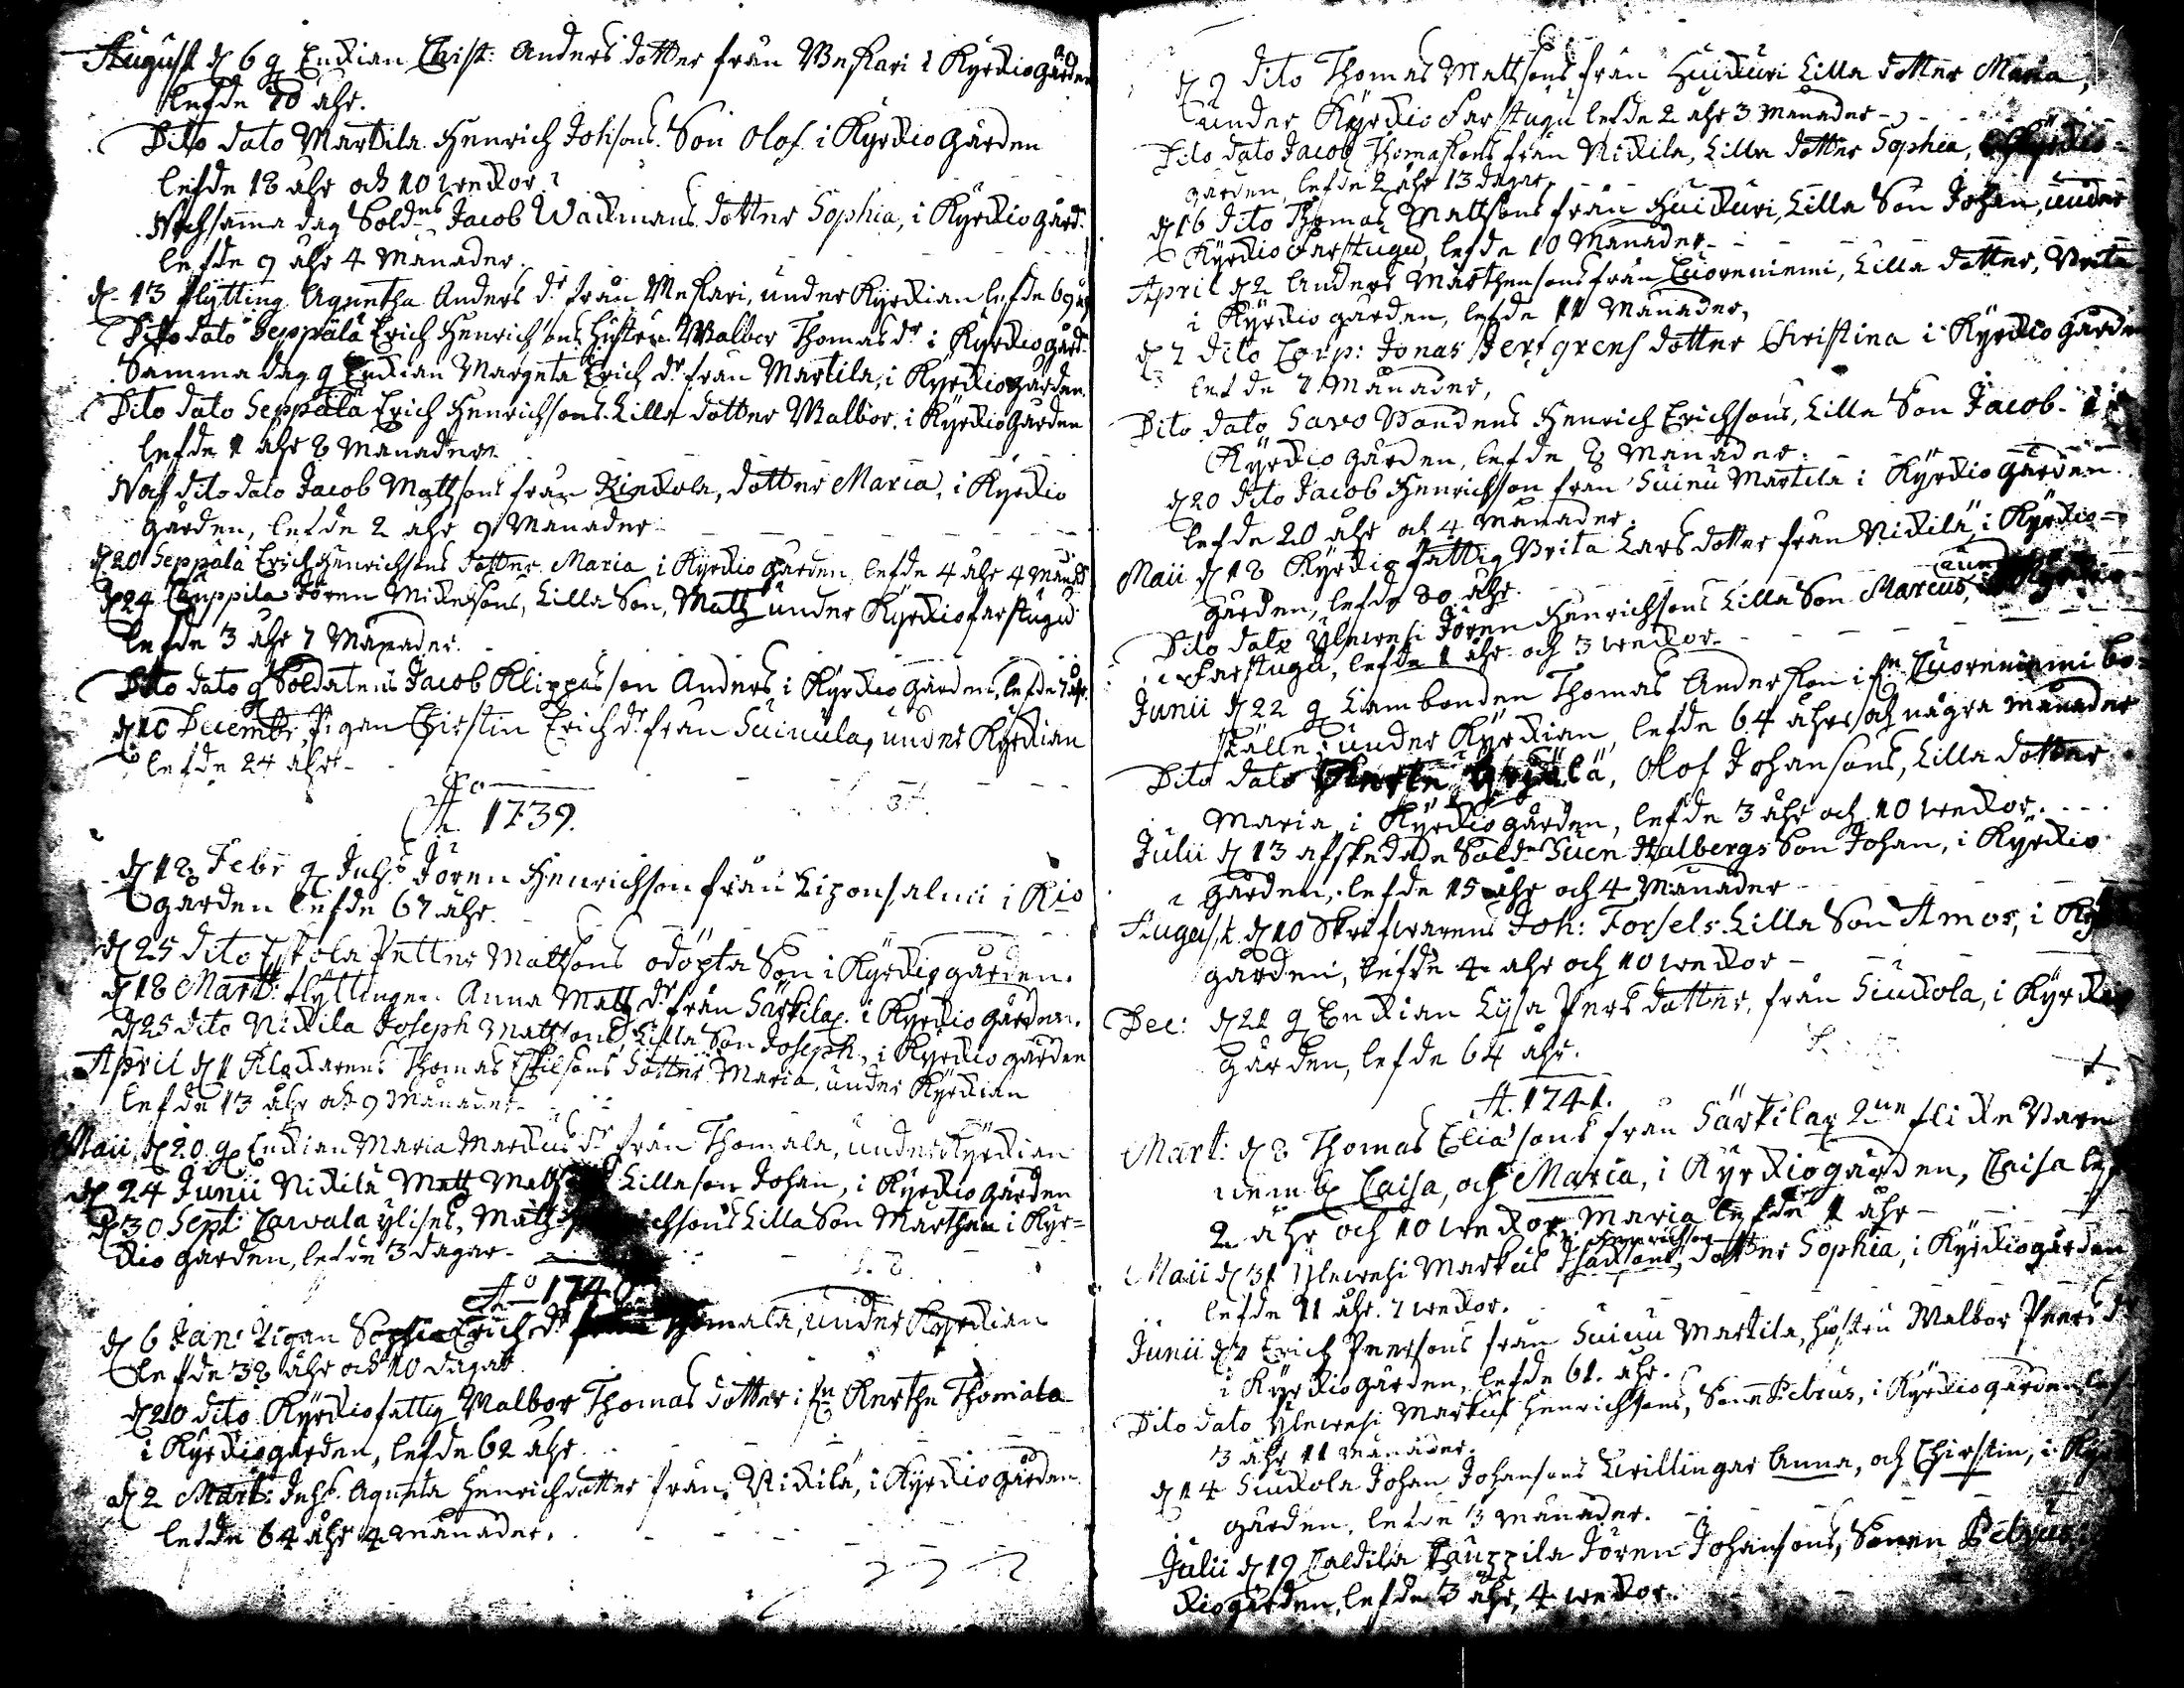 August d 6 g Enkian Christ: Anders dotter från Weskari i Kyrkiogården
lefde 70 åhr.
Dito dato Martila Henrich Johsons Son Olof i Kyrkiogården
lefde 18 åhr och 10 wekor
Noch samma dag Soldns Jacob Wackmans dotter Sophia, i Kyrkiogård.
lefde 9 åhr 4 Månader.
d 13 flytting Agnetha Anders dr från Meskari, under Kyrkian lefde 69 åhr
Dito dato Seppälä Erich Henrichsons hustru Walbor Thomas dr i Kyrkiogård.
Samma dag g Enkian Margeta Erich dr från Martila, i Kyrkiogården.
Dito dato Seppälä Erich Henrichsons Lilla dotter Walbor, i Kyrkiogården
lefde 1 åhr 8 Månader.
Noch dito dato Jacob Mattsons från dotter Maria, i Kyrkio
gården, lefde 2 åhr 9 Månader
d 20 Seppälä Erich Henrichsons dotter Maria i Kyrkiogården, lefde 4 åhr 4 Månd
d 24 Cauppila Jören Mickelsons, Lilla Son, Math under Kyrkiofarstugu
lefde 3 åhr 7 Månader.
Dito dato g Soldatens Jacob Klippas son Anders i Kyrkiogården, lefde 7 åhr.
d 10 Decembr Pigan Chirstin Erich dr från Suinula, under Kyrkian
lefde 24 åhr
Ao 1739.
d 18 Febr g Inhs Jören Henrichson från Liponsalmi i Kio
gården lefde 67 åhr.
d 25 dito Eskola Petter Mattsons odöpta Son i Kyrkiogården.
d 18 Marti flyttingen Anna Math dr från Särkilax i Kyrkiogården.
d 25 dito Nickila Joseph Mattsons Lilla Son Joseph, i Kyrkiogården
April d 1 Klackarens Thomas Eskilsons dotter Maria, under Kyrkian
lefde 13 åhr och 9 Månader
Maii d 20 g Enkian Maria Markus dr från Thomala, under Kyrkian
d 24 Junii Nickilä Math Lilla son Johan, i Kyrkiogården
d 30 Sept: Carvala Ylises, Math Lilla Son Mårthen i Kyr=
kiogården, lefde 3 dagar
Ao 1740
d 6 Janr Pigan Sophia Erich dr från Thomala, under Kyrkian
lefde 38 åhr och 10 dagar
d 20 dito Kyrkiofattig Walbor Thomas dotter i fr Kerthe Thomala
i Kyrkiogården, lefde 62 åhr
d 2 Marti: Inhs. Agneta Henrichdotter från Nickilä, i Kyrkiogården
lefde 64 åhr 4 månader.
d 9 dito Thomas Mattsons från Huikuri Lilla dotter Maria,
under Kyrkiofarstugu lefde 2 åhr 3 Månader
Dito dato Jacob Thomassons från Nickila, Lilla dotter Sophia, i Kyrkio-
gården, lefde 2 åhr 13 dagar
d 16 dito Thomas Mattsons från Huikuri, Lilla Son Johan, under
Kyrkiofarstugu, lefde 10 Månader
April d 2 Anders Mårthensons från Cuoreniemi, Lilla dotter, Brita
i Kyrkiogården, lefde 11 Månader,
d 7 dito Corp: Jonas dotter Christina i Kyrkiogården
lefde 7 Månader,
Dito dato Savo Bondens Henrich Erichsons, Lilla Son Jacob i
Kyrkiogården, lefde 8 Månader.
d 20 dito Jacob Henrichson från Suinu Martila i Kyrkiogården.
lefde 20 åhr och 4 månader.
Maii d 18 Kyrkiofattig Brita Lars dotter från Nickilä, i Kyrkio-
gården, lefde 80 åhr.
Dito dato Ylewehi Jören Henrichsons Lilla Son Marcus, under
Farstugu, lefde 1 åhr och 3 wekor.
Junii d 22 g Lambonden Thomas Anderson i fr Cuoreniemi bo-
ställe, under Kyrkian, lefde 64 åhr och några månader
Dito dato Olof Johansons, Lilla dotter
Maria, i Kyrkiogården, lefde 3 åhr och 10 wekor.
Julii d 13 afskedade Soldns Suen Halbergs Son Johan, i Kyrkio
gården, lefde 15 åhr och 4 Månader
August. d 10 Skrifwarens Joh: Forsels Lilla Son Amos, i Ky
gården, lefde 4 åhr och 10 wekor
Dec: d 21 g Enkian Lysa Pers dotter, från Siukola, i Kyrkio
gården, lefde 64 åhr.
A. 1741.
Mart: d 8 Thomas Eliasons från Särkilax 2ne flicke Barn
nembl Caisa, och Maria, i Kyrkiogården, Caisa lef
2 åhr och 10 wekor, Maria lefde 1 åhr
Henrichson
Maii d 31 Ylewehi Markus Isacsons, dotter Sophia, i Kyrkiogården
lefde 11 åhr. 7 wekor.
Junii d 1 Erich Peersons från Suinu Martila, hustru Walbor Peers dr
i Kyrkiogården, lefde 61. åhr.
Dito dato Ylewehi Markus Henrichsons, Son Petrus, i Kyrkiogården lef
3 åhr 11 månader.
d 14 Siukola Johan Johansons twillingar Anna, och Chirstin, i Ky
gården, lefde 3 månader.
Julii d 19 Caldila Cauppila Jören Johansons, Sonen Petrus
kiogården, lefde 3 åhr, 4 wekor.